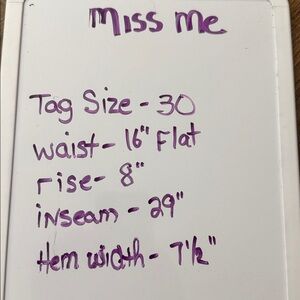 Miss Me
Tag Size - 30
waist - 16" Flat
rise - 8"
inseam - 29"
Hem width - 7½"